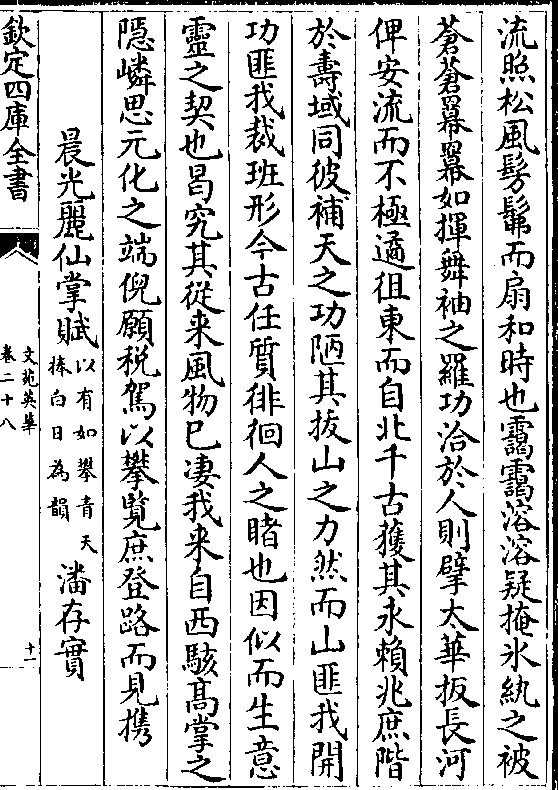 流照松風髣髴而扇和時也靄靄溶溶疑掩氷紈之被
蒼蒼羃羃如揮舞袖之羅功洽於人則擘太華扳長河
俾安流而不極遹徂東而自北千古獲其永賴兆庶階
於壽域同彼補天之功陋其拔山之力然而山匪我開
功匪我裁班形今古任質徘徊人之睹也因似而生意
靈之契也曷究其從来風物已凄我来自西駭髙掌之
隱嶙思元化之端倪願税駕以攀覽庶登路而見携
晨光麗仙掌賦以有如攀青天捧白日為韻 潘存實
欽定四庫全書
文苑英華
卷二十八
十一